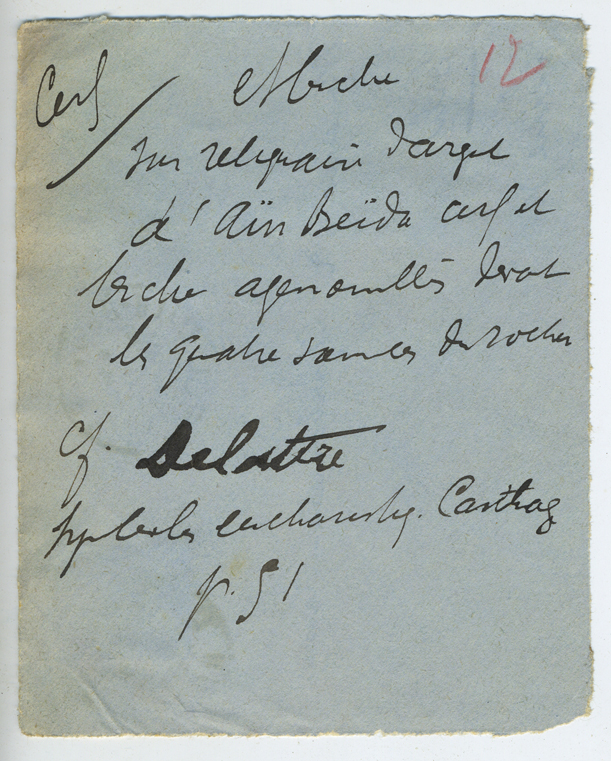 Cerf / et biche 12
sur reliquaire d'argent
d'Aïn Beïda cerf et
biche agenouillés devant
les quatre sources du rocher
cf. Delattre
Symboles eucharistiq. Carthag
p. 51